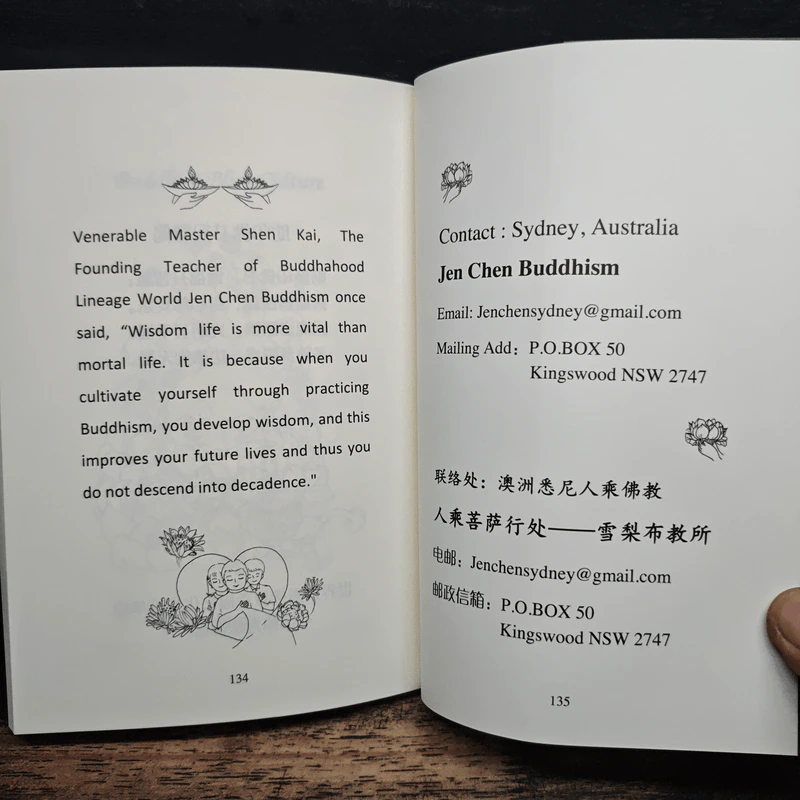 Venerable Master Shen Kai, The
Founding Teacher of Buddhahood
Lineage World Jen Chen Buddhism once
said, “Wisdom life is more vital than
mortal life. It is because when you
cultivate yourself through practicing
Buddhism, you develop wisdom, and this
improves your future lives and thus you
do not descend into decadence."
134
Contact : Sydney, Australia
Jen Chen Buddhism
Email: Jenchensydney@gmail.com
Mailing Add：P.O.BOX 50
Kingswood NSW 2747
联络处：澳洲悉尼人乘佛教
人乘菩萨行处——雪梨布教所
电邮：Jenchensydney@gmail.com
邮政信箱：P.O.BOX 50
Kingswood NSW 2747
135